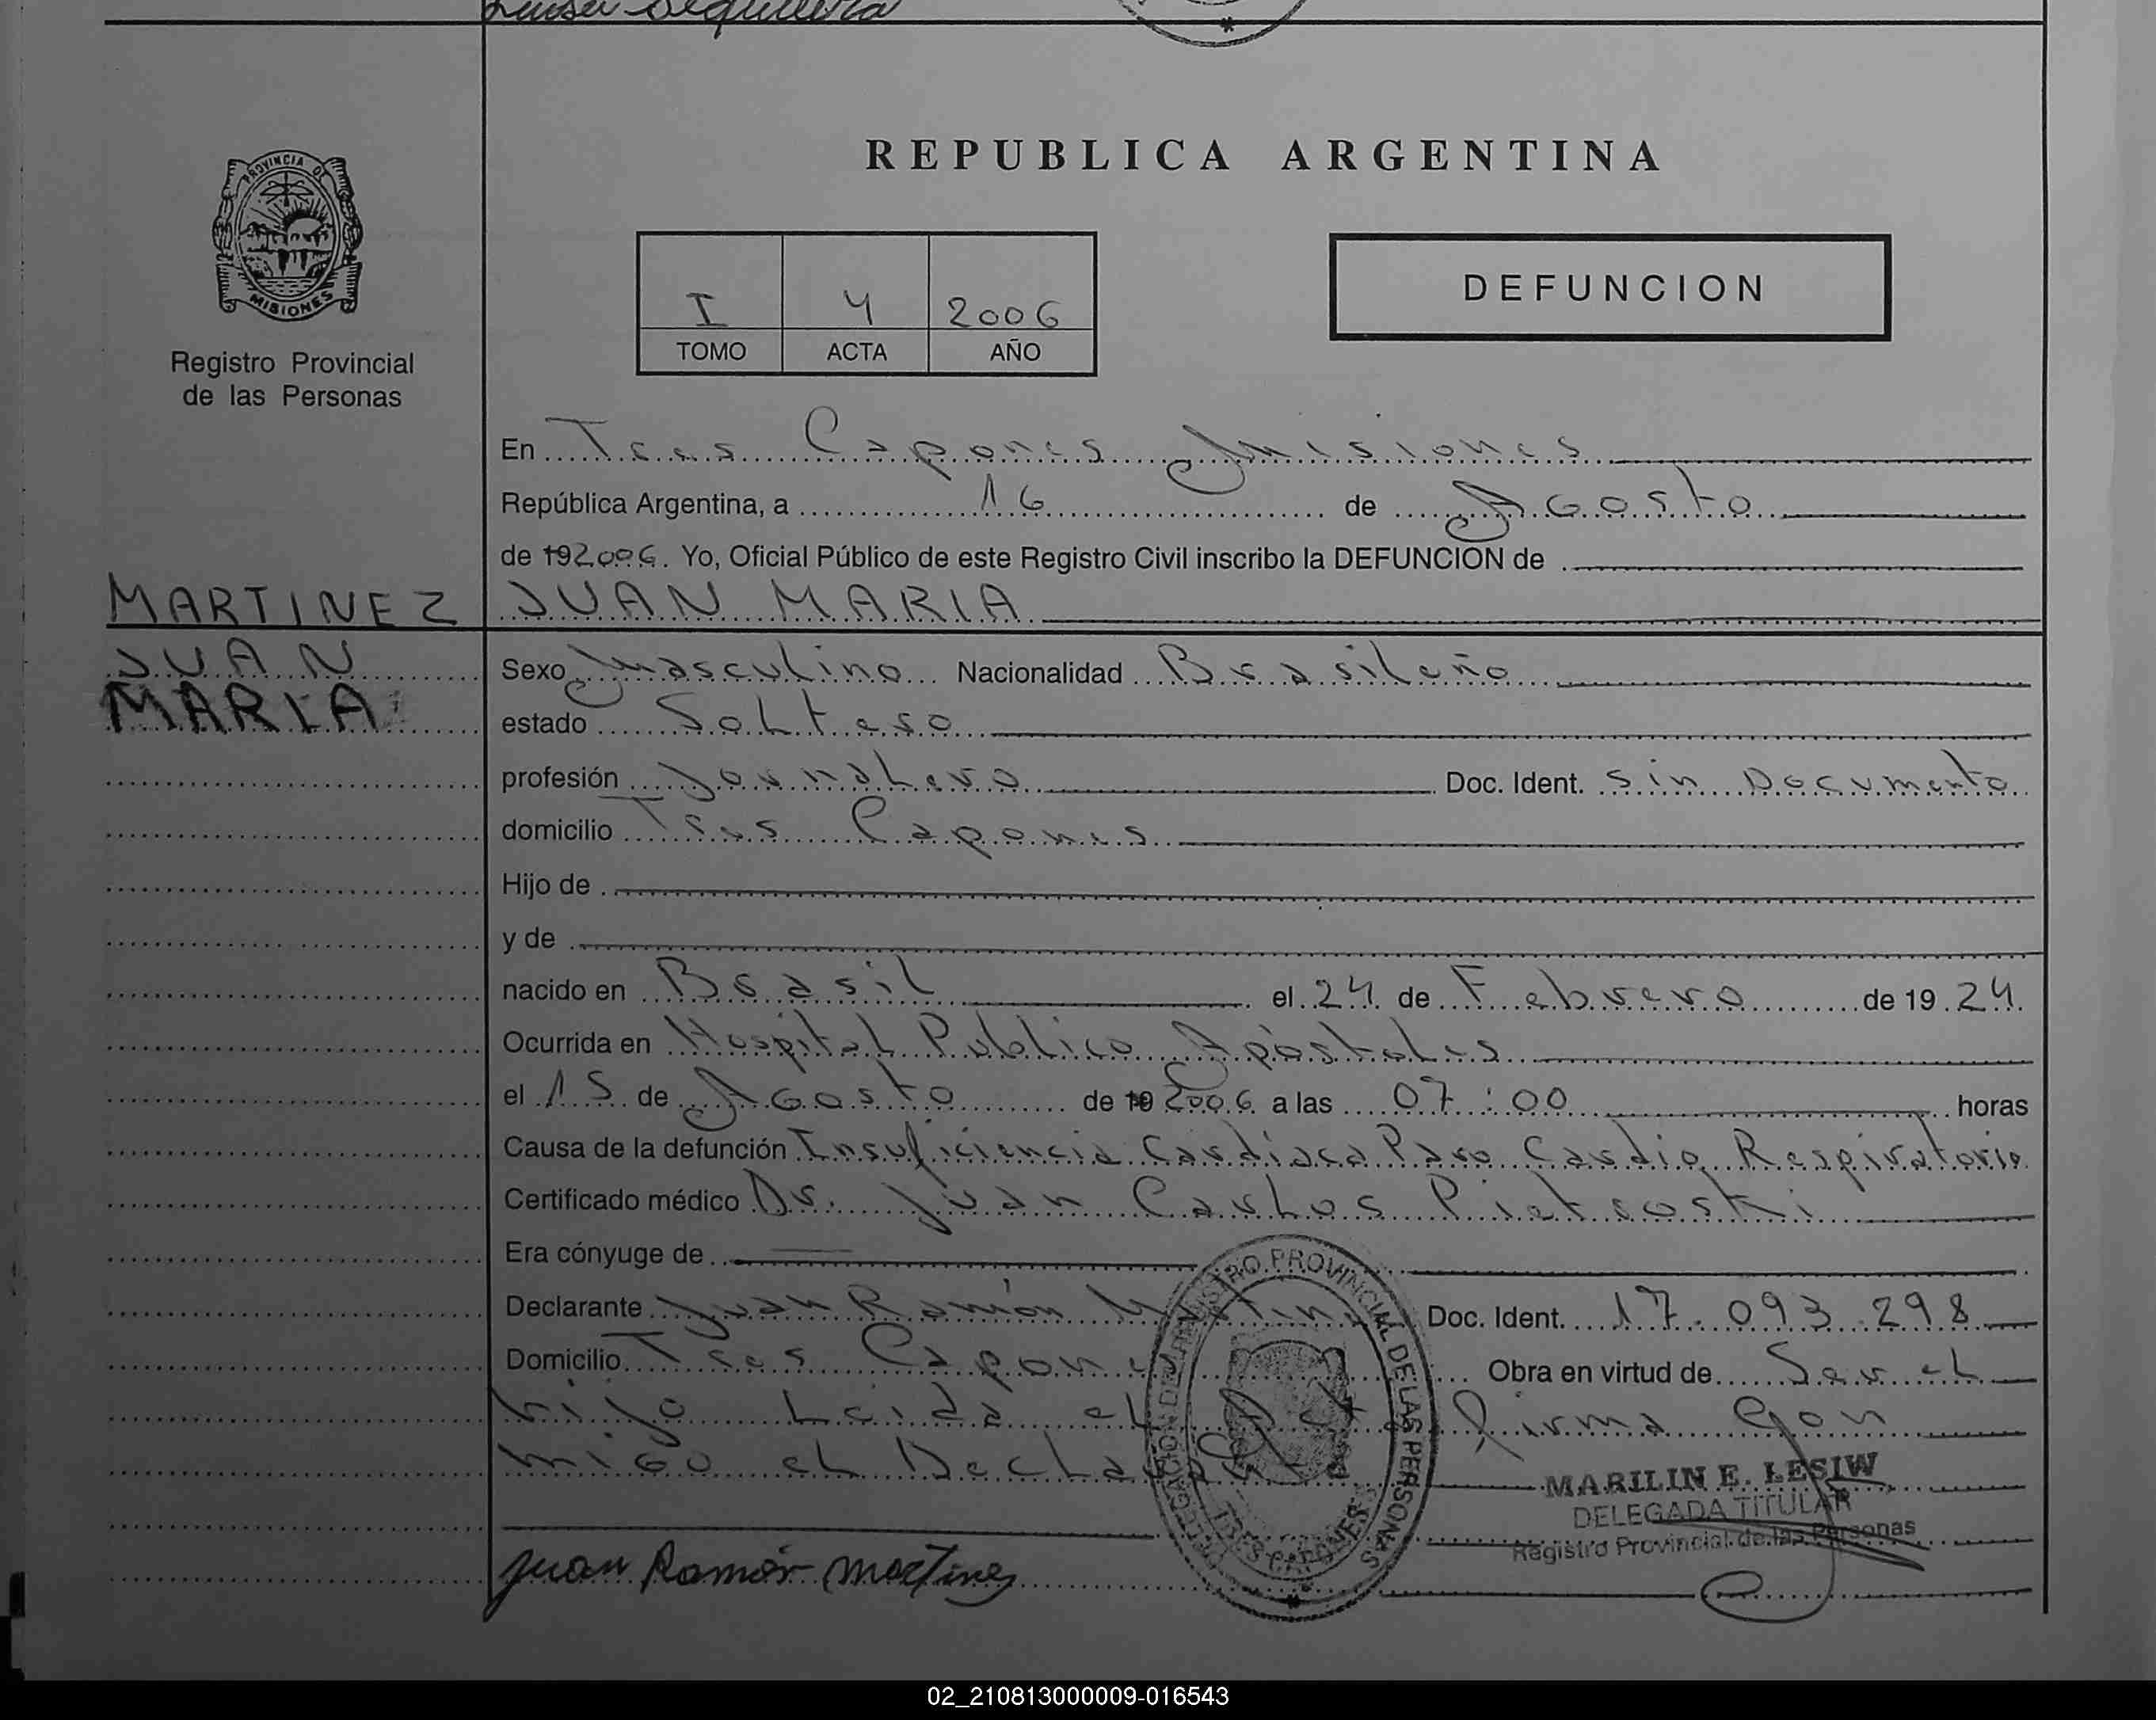 Luisa Sequeira
REPUBLICA ARGENTINA
PROVINCIA DE
MISIONES
Registro Provincial
de las Personas
I 4 2006
TOMO ACTA AÑO
DEFUNCION
En Tres Capones Misiones
República Argentina, a 16 de Agosto
de 192006. Yo, Oficial Público de este Registro Civil inscribo la DEFUNCION de
MARTINEZ JUAN MARIA
JUAN
MARIA
Sexo Masculino Nacionalidad Brasileño
estado Soltero
profesión Jornalero Doc. Ident. Sin Documento
domicilio Tres Capones
Hijo de
y de
nacido en Brasil el 24 de Febrero de 1924
Ocurrida en Hospital Publico Apóstoles
el 15 de Agosto de 19 2006 a las 07:00 horas
Causa de la defunción Insuficiencia Cardíaca Paro Cardio Respiratorio
Certificado médico Dr. Juan Carlos Pietroski
Era cónyuge de
Declarante Juan Ramón Martinez Doc. Ident. 17.093.298
Domicilio Tres Capones Obra en virtud de Ser el
hijo Leida el Acta firma Con
migo el Declarante
REGISTRO PROVINCIAL DE LAS PERSONAS
TRES CAPONES
MARILIN E. LESIW
DELEGADA TITULAR
Registro Provincial de las Personas
Juan Ramón Martinez
02_210813000009-016543